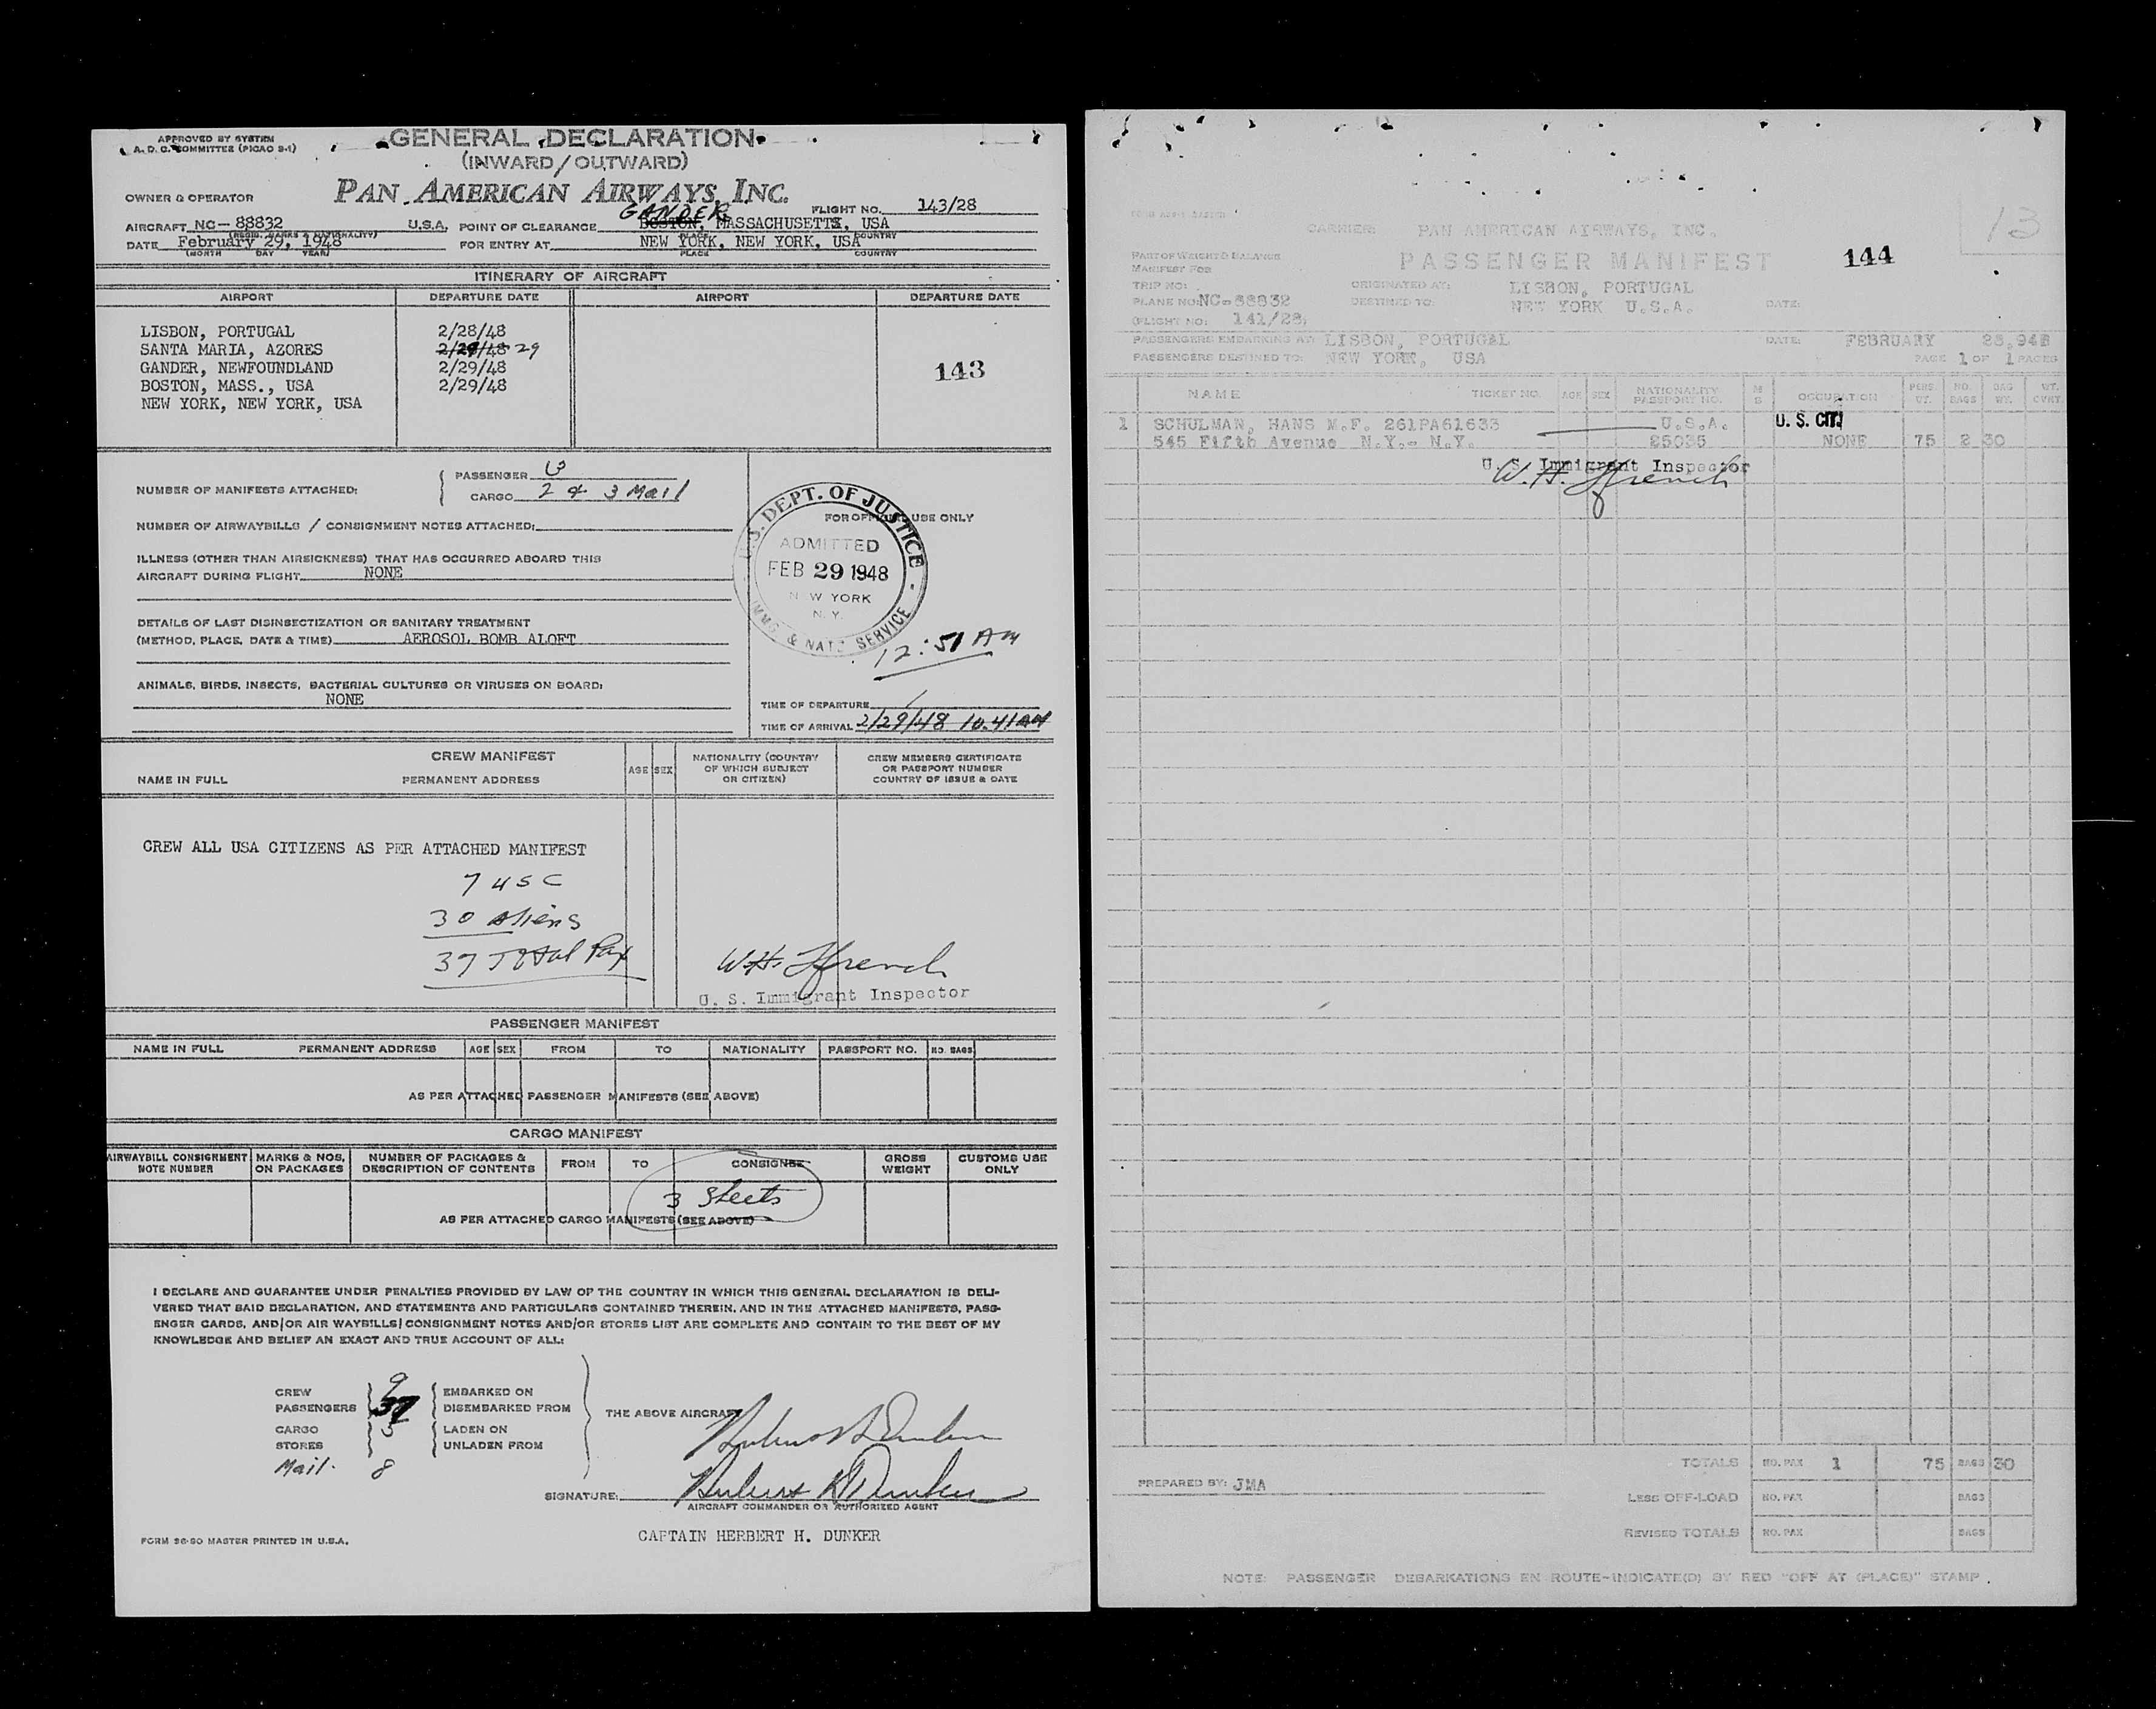 APPROVED BY SYSTEM
A. D. C. COMMITTEE (PICAO 9-1)
GENERAL DECLARATION
(INWARD/OUTWARD)
OWNER & OPERATOR
PAN AMERICAN AIRWAYS, INC.
GANDER
FLIGHT NO. 143/28
AIRCRAFT NC-88832 U.S.A. POINT OF CLEARANCE BOSTON, MASSACHUSETTS, USA
(REGIS. MARKS & NATIONALITY) PLACE COUNTRY
DATE February 29, 1948 FOR ENTRY AT NEW YORK, NEW YORK, USA
(MONTH DAY YEAR) PLACE COUNTRY
ITINERARY OF AIRCRAFT
AIRPORT DEPARTURE DATE AIRPORT DEPARTURE DATE
LISBON, PORTUGAL 2/28/48
SANTA MARIA, AZORES 2/28/48 29
GANDER, NEWFOUNDLAND 2/29/48
BOSTON, MASS., USA 2/29/48
NEW YORK, NEW YORK, USA
143
NUMBER OF MANIFESTS ATTACHED:
PASSENGER
CARGO 2 & 3 Mail
NUMBER OF AIRWAYBILLS / CONSIGNMENT NOTES ATTACHED:
ILLNESS (OTHER THAN AIRSICKNESS) THAT HAS OCCURRED ABOARD THIS
AIRCRAFT DURING FLIGHT NONE
DETAILS OF LAST DISINSECTIZATION OR SANITARY TREATMENT
(METHOD, PLACE, DATE & TIME) AEROSOL BOMB ALOFT
ANIMALS, BIRDS, INSECTS, BACTERIAL CULTURES OR VIRUSES ON BOARD:
NONE
FOR OFFICIAL USE ONLY
U.S. DEPT. OF JUSTICE
ADMITTED
FEB 29 1948
NEW YORK
N. Y.
IMMG. & NATZ. SERVICE
12:51 AM
TIME OF DEPARTURE
TIME OF ARRIVAL 2/29/48 10.41 AM
CREW MANIFEST
NAME IN FULL PERMANENT ADDRESS AGE SEX NATIONALITY (COUNTRY OF WHICH SUBJECT OR CITIZEN) CREW MEMBERS CERTIFICATE OR PASSPORT NUMBER COUNTRY OF ISSUE & DATE
CREW ALL USA CITIZENS AS PER ATTACHED MANIFEST
7 USC
30 Aliens
37 Total Pax
W.H. Ffrench
U. S. Immigrant Inspector
PASSENGER MANIFEST
NAME IN FULL PERMANENT ADDRESS AGE SEX FROM TO NATIONALITY PASSPORT NO. NO. BAGS
AS PER ATTACHED PASSENGER MANIFESTS (SEE ABOVE)
CARGO MANIFEST
AIRWAYBILL CONSIGNMENT NOTE NUMBER MARKS & NOS. ON PACKAGES NUMBER OF PACKAGES & DESCRIPTION OF CONTENTS FROM TO CONSIGNEE GROSS WEIGHT CUSTOMS USE ONLY
3 Sheets
AS PER ATTACHED CARGO MANIFESTS (SEE ABOVE)
I DECLARE AND GUARANTEE UNDER PENALTIES PROVIDED BY LAW OF THE COUNTRY IN WHICH THIS GENERAL DECLARATION IS DELI-
VERED THAT SAID DECLARATION, AND STATEMENTS AND PARTICULARS CONTAINED THEREIN, AND IN THE ATTACHED MANIFESTS, PASS-
ENGER CARDS, AND/OR AIR WAYBILLS/CONSIGNMENT NOTES AND/OR STORES LIST ARE COMPLETE AND CONTAIN TO THE BEST OF MY
KNOWLEDGE AND BELIEF AN EXACT AND TRUE ACCOUNT OF ALL:
CREW 9 EMBARKED ON
PASSENGERS 37 DISEMBARKED FROM
THE ABOVE AIRCRAFT
CARGO 5 LADEN ON
STORES UNLADEN FROM
Mail. 8
SIGNATURE:
AIRCRAFT COMMANDER OR AUTHORIZED AGENT
CAPTAIN HERBERT H. DUNKER
FORM 96-50 MASTER PRINTED IN U.S.A.
13
CARRIER: PAN AMERICAN AIRWAYS, INC.
PART OF WEIGHT & BALANCE
MANIFEST FOR
PASSENGER MANIFEST 144
TRIP NO: ORIGINATED AT: LISBON, PORTUGAL
PLANE NO: NC-88832 DESTINED TO: NEW YORK U.S.A. DATE:
(FLIGHT NO: 141/28)
PASSENGERS EMBARKING AT: LISBON, PORTUGAL DATE: FEBRUARY 28,948
PASSENGERS DESTINED TO: NEW YORK, USA PAGE 1 OF 1 PAGES
NAME TICKET NO. AGE SEX NATIONALITY PASSPORT NO. M S OCCUPATION PERS. WT. NO. BAGS BAG WT. WT. OVHT.
1 SCHULMAN, HANS M.F. 261PA61633 U.S.A. U. S. CIT.
545 Fifth Avenue N.Y.- N.Y. 25035 NONE 75 2 30
U. S. Immigrant Inspector
W.H. Ffrench
TOTALS NO. PAX 1 75 BAGS 30
PREPARED BY: JMA
LESS OFF-LOAD NO. PAX BAGS
REVISED TOTALS NO. PAX BAGS
NOTE: PASSENGER DEBARKATIONS EN ROUTE-INDICATE(D) BY RED "OFF AT (PLACE)" STAMP.